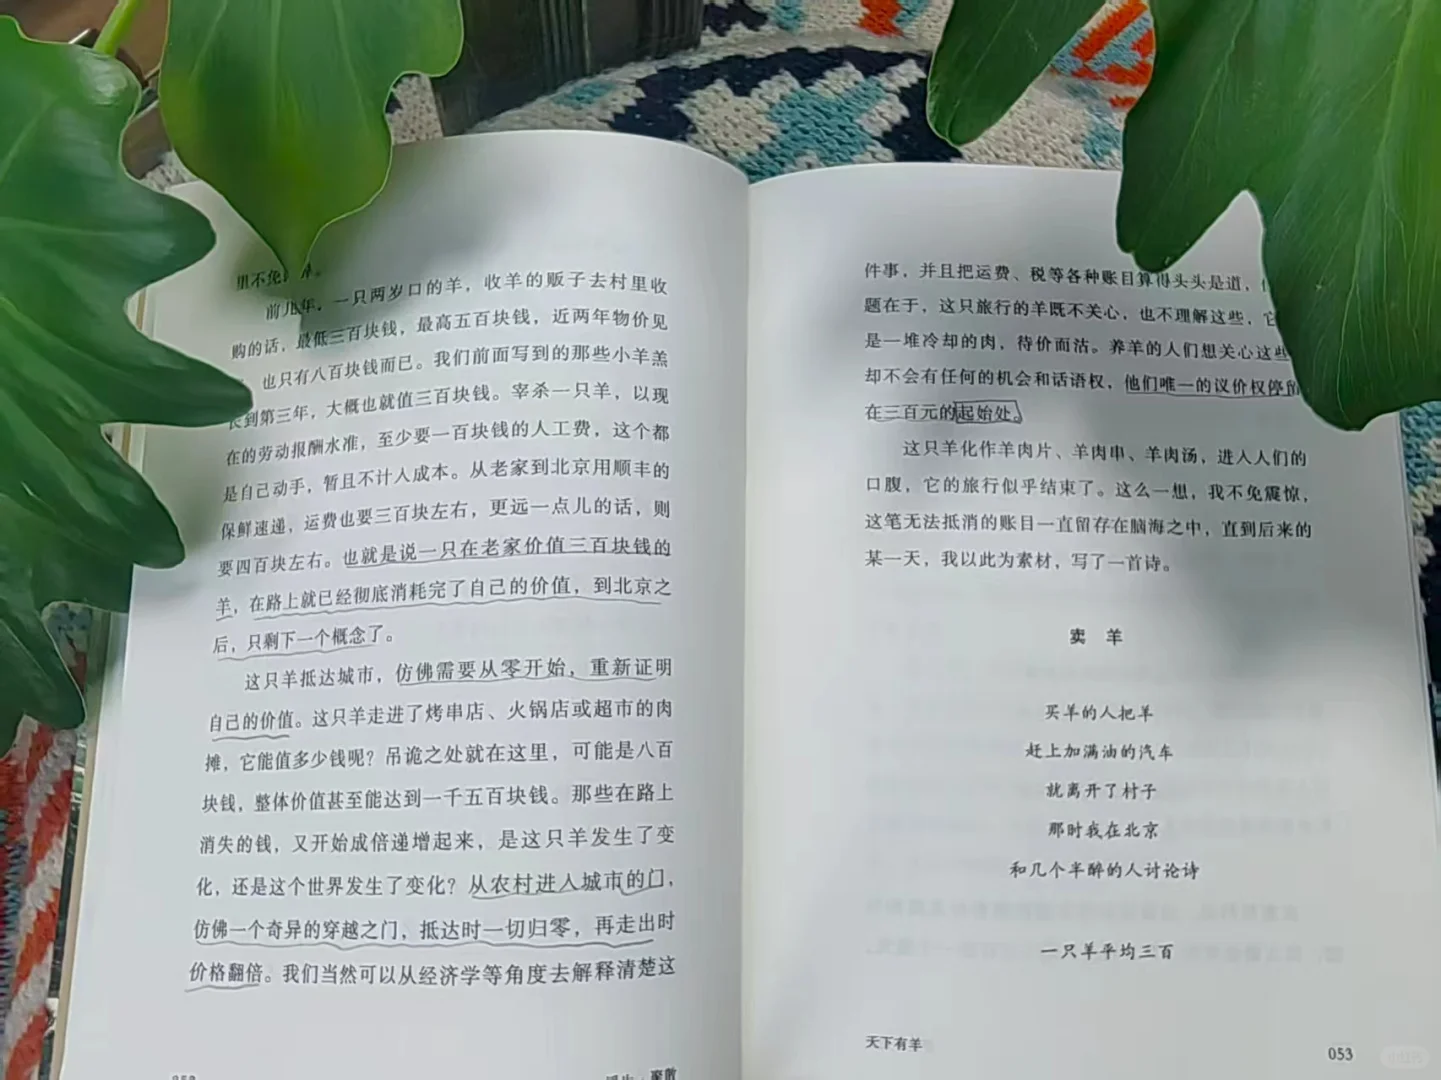 里不免
前几年，一只两岁口的羊，收羊的贩子去村里收
购的话，最低三百块钱，最高五百块钱，近两年物价见
也只有八百块钱而已。我们前面写到的那些小羊羔
长到第三年，大概也就值三百块钱。宰杀一只羊，以现
在的劳动报酬水准，至少要一百块钱的人工费，这个都
是自己动手，暂且不计入成本。从老家到北京用顺丰的
保鲜速递，运费也要三百块左右，更远一点儿的话，则
要四百块左右。也就是说一只在老家价值三百块钱的
羊，在路上就已经彻底消耗完了自己的价值，到北京之
后，只剩下一个概念了。
这只羊抵达城市，仿佛需要从零开始，重新证明
自己的价值。这只羊走进了烤串店、火锅店或超市的肉
摊，它能值多少钱呢？吊诡之处就在这里，可能是八百
块钱，整体价值甚至能达到一千五百块钱。那些在路上
消失的钱，又开始成倍递增起来，是这只羊发生了变
化，还是这个世界发生了变化？从农村进入城市的门，
仿佛一个奇异的穿越之门，抵达时一切归零，再走出时
价格翻倍。我们当然可以从经济学等角度去解释清楚这
聚散
件事，并且把运费、税等各种账目算得头头是道，
题在于，这只旅行的羊既不关心，也不理解这些，它
是一堆冷却的肉，待价而沽。养羊的人们想关心这些
却不会有任何的机会和话语权，他们唯一的议价权停留
在三百元的起始处。
这只羊化作羊肉片、羊肉串、羊肉汤，进入人们的
口腹，它的旅行似乎结束了。这么一想，我不免震惊，
这笔无法抵消的账目一直留存在脑海之中，直到后来的
某一天，我以此为素材，写了一首诗。
卖 羊
买羊的人把羊
赶上加满油的汽车
就离开了村子
那时我在北京
和几个半醉的人讨论诗
一只羊平均三百
天下有羊
053